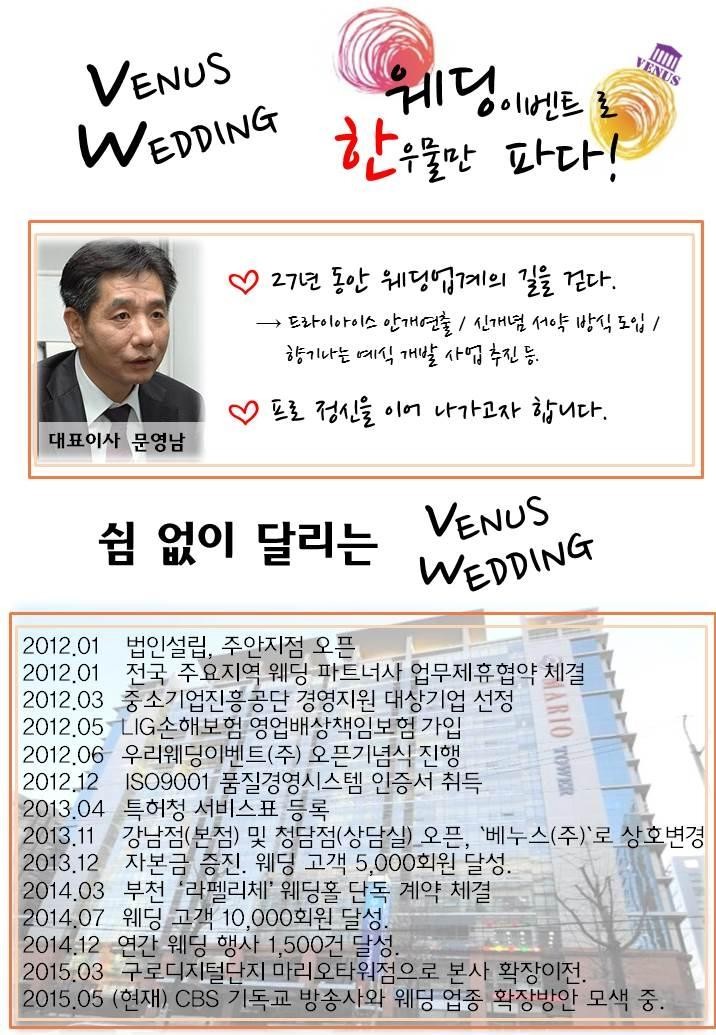 VENUS
WEDDING
웨딩이벤트로
한우물만 파다!
VENUS
♡ 27년 동안 웨딩업계의 길을 걷다.
→ 드라이아이스 안개연출 / 신개념 서약 방식 도입 /
향기나는 예식 개발 사업 추진 등.
♡ 프로 정신을 이어 나가고자 합니다.
대표이사 문영남
쉼 없이 달리는
VENUS
WEDDING
2012.01 법인설립, 주안지점 오픈
2012.01 전국 주요지역 웨딩 파트너사 업무제휴협약 체결
2012.03 중소기업진흥공단 경영지원 대상기업 선정
2012.05 LIG손해보험 영업배상책임보험 가입
2012.06 우리웨딩이벤트(주) 오픈기념식 진행
2012.12 ISO9001 품질경영시스템 인증서 취득
2013.04 특허청 서비스표 등록
2013.11 강남점(본점) 및 청담점(상담실) 오픈, `베누스(주)`로 상호변경
2013.12 자본금 증진. 웨딩 고객 5,000회원 달성.
2014.03 부천 ‘라펠리체’ 웨딩홀 단독 계약 체결
2014.07 웨딩 고객 10,000회원 달성.
2014.12 연간 웨딩 행사 1,500건 달성.
2015.03 구로디지털단지 마리오타워점으로 본사 확장이전.
2015.05 (현재) CBS 기독교 방송사와 웨딩 업종 확장방안 모색 중.
MARIO
TOWER